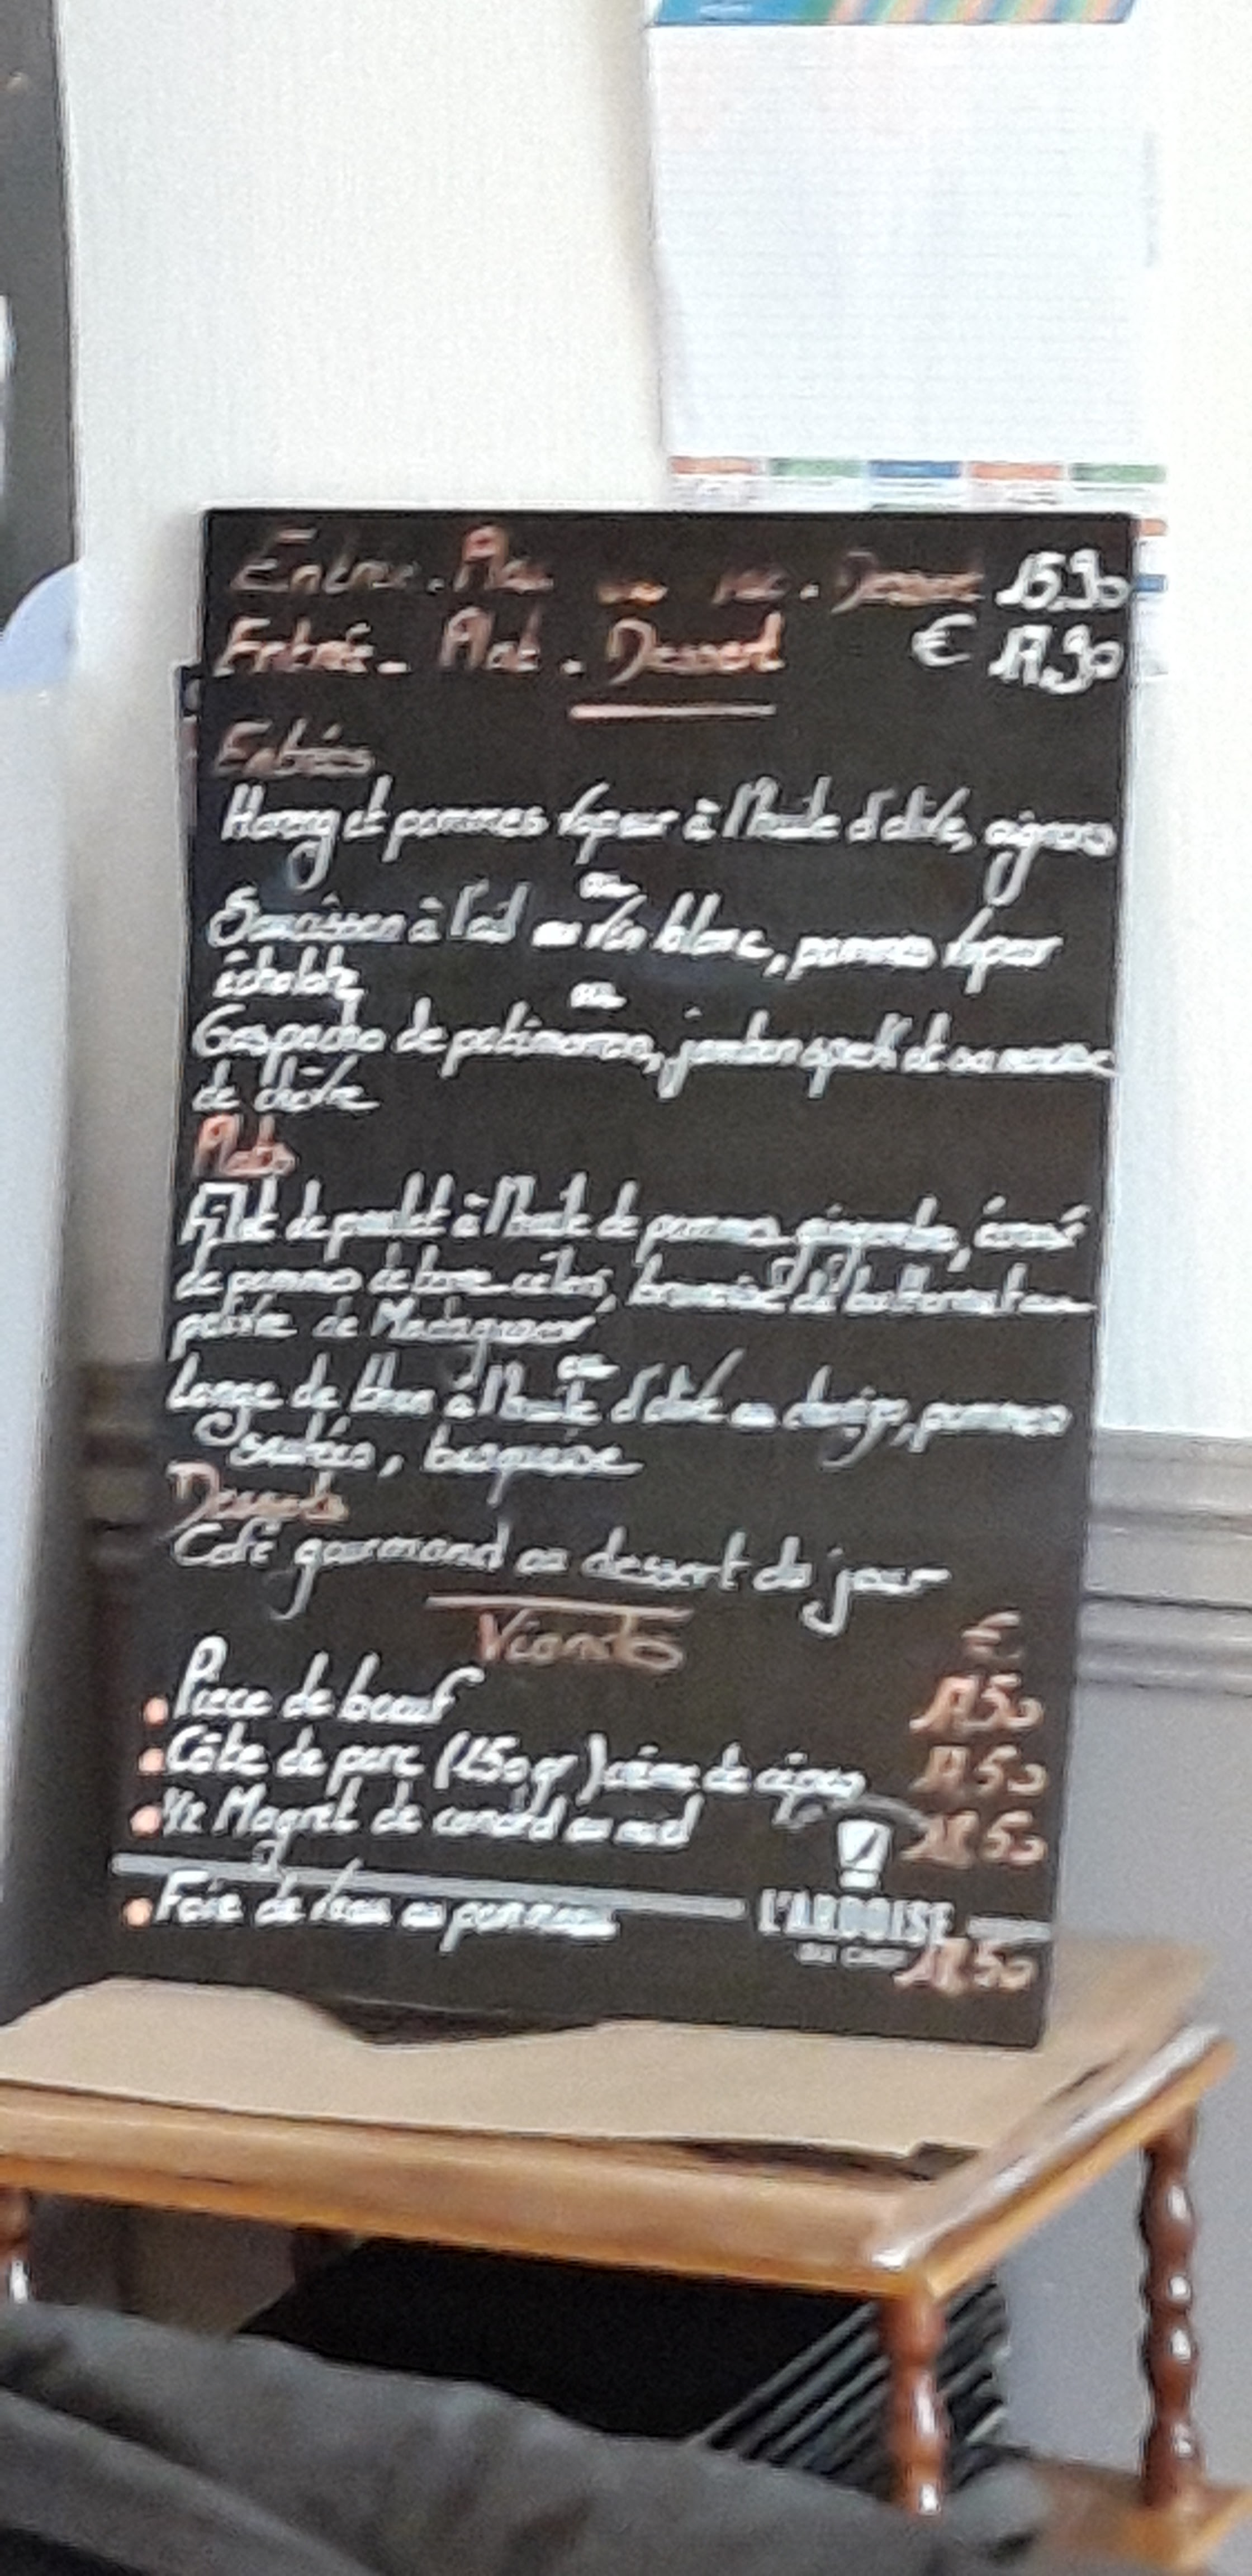 Entrée. Plat ou . Dessert 15.90
Entrée. Plat . Dessert € 17.90
Entrées
Hareng et pommes vapeur à l'huile d'olive, oignons
ou
Saucisson à l'ail au vin blanc, pommes vapeur
échalote
ou
Gaspacho de potimarron, jambon speck et sa mousse
de chèvre
Plats
Filet de poulet à l'huile de pommes gingembre, écrasé
de pommes de terre céleri, butternut au
poivre de Madagascar
ou
Longe de thon à l'huile d'olive au , pommes
sautées, basquaise
Desserts
Café gourmand ou dessert du jour
Viandes €
. Pièce de boeuf 17.50
. Côte de porc (250gr) crème de cèpes 17.50
. 1/2 Magret de canard au miel 18.50
L'ARDOISE
. Foie de veau au 18.50